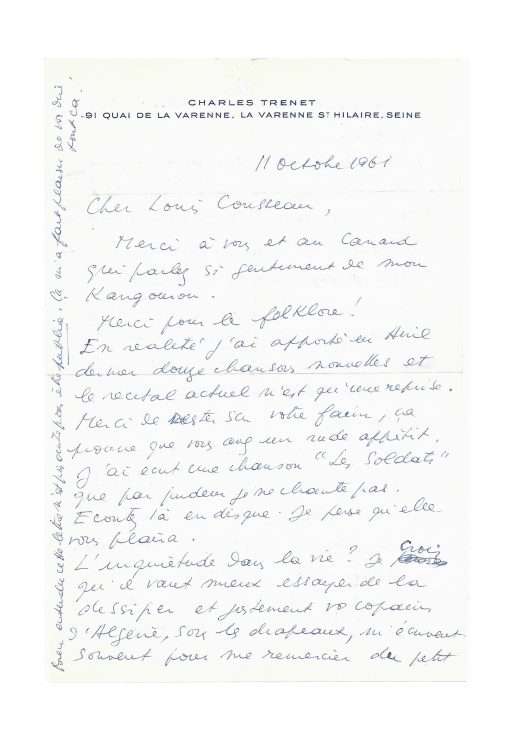 CHARLES TRENET
91 QUAI DE LA VARENNE, LA VARENNE ST HILAIRE, SEINE
11 octobre 1961
Cher Louis Cousseau,
Merci à vous et au Canard
qui parlez si gentiment de mon
Kangourou.
Merci pour le folklore!
En réalité j'ai apporté en Avril
dernier douze chansons nouvelles et
le récital actuel n'est qu'une reprise.
Merci de rester sur votre faim, ça
prouve que vous avez un rude appétit.
J'ai écrit une chanson "Les Soldats"
que par pudeur je ne chante pas.
Ecoutez là en disque. Je pense qu'elle
vous plaira.
L'inquiétude dans la vie? Je crois
qu'il vaut mieux essayer de la
dissiper et justement vos copains
d'Algérie, sous les drapeaux, m'écrivent
souvent pour me remercier du petit
Bien entendu cette lettre n'est pas écrite pour être publiée. Ça m'a fait plaisir de vous dire
tout ça!